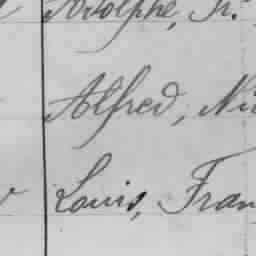 Adolphe,
Alfred, Ni
Louis, Fran